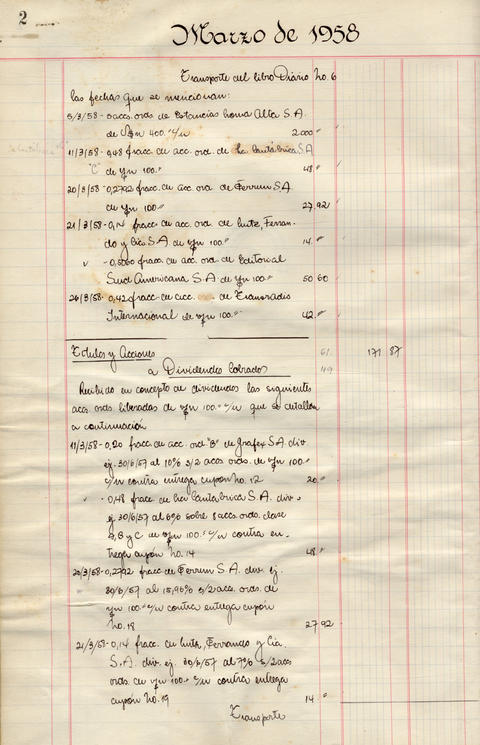 2
Marzo de 1958
Transporte del libro Diario No. 6
las fechas que se mencionan:
5/3/58 - accs. ords. de Estancias Loma Alta S.A.
de 400.- c/u 2.000 "
11/3/58 - 0,48 fracc. de acc. ord. de La Cantábrica S.A.
"C" de v$n 100." 48 "
20/3/58 - 0,2792 fracc. de acc. ord. de Ferrum S.A.
de v$n 100." 27,92
21/3/58 - 0,14 fracc. de acc. ord. de Lutz, Ferran-
do y Cía. S.A. de v$n 100." 14. "
" - 0,5060 fracc. de acc. ord. de Editorial
Sud Americana S.A. de v$n 100." 50 60
26/3/58 - 0,42 fracc. de acc. de Transradio
Internacional de v$n 100." 42. "
Títulos y Acciones 61. 171 87
a Dividendos Cobrados 49
Recibido en concepto de dividendos las siguientes
accs. ords. liberadas de v$n 100.- c/u que se detallan
a continuación
11/3/58 - 0,20 fracc. de acc. ord. "B" de Grafex S.A. div.
ej. 30/6/57 al 10% s/2 accs. ords. de v$n 100."
c/u contra entrega cupón No. 12 20. "
" - 0,48 fracc. de La Cantábrica S.A. div.
ej. 30/6/57 al 6% sobre 8 accs. ords. clase
B y C de v$n 100." c/u contra en-
trega cupón No. 14 48. "
20/3/58 - 0,2792 fracc. de Ferrum S.A. div. ej.
30/6/57 al 13,96% s/2 accs. ords. de
v$n 100." c/u contra entrega cupón
No. 18 27 92
21/3/58 - 0,14 fracc. de Lutz, Ferrando y Cía.
S.A. div. ej. 30/6/57 al 7% s/2 accs.
ords. de v$n 100." c/u contra entrega
cupón No. 19 14 "
Transporte